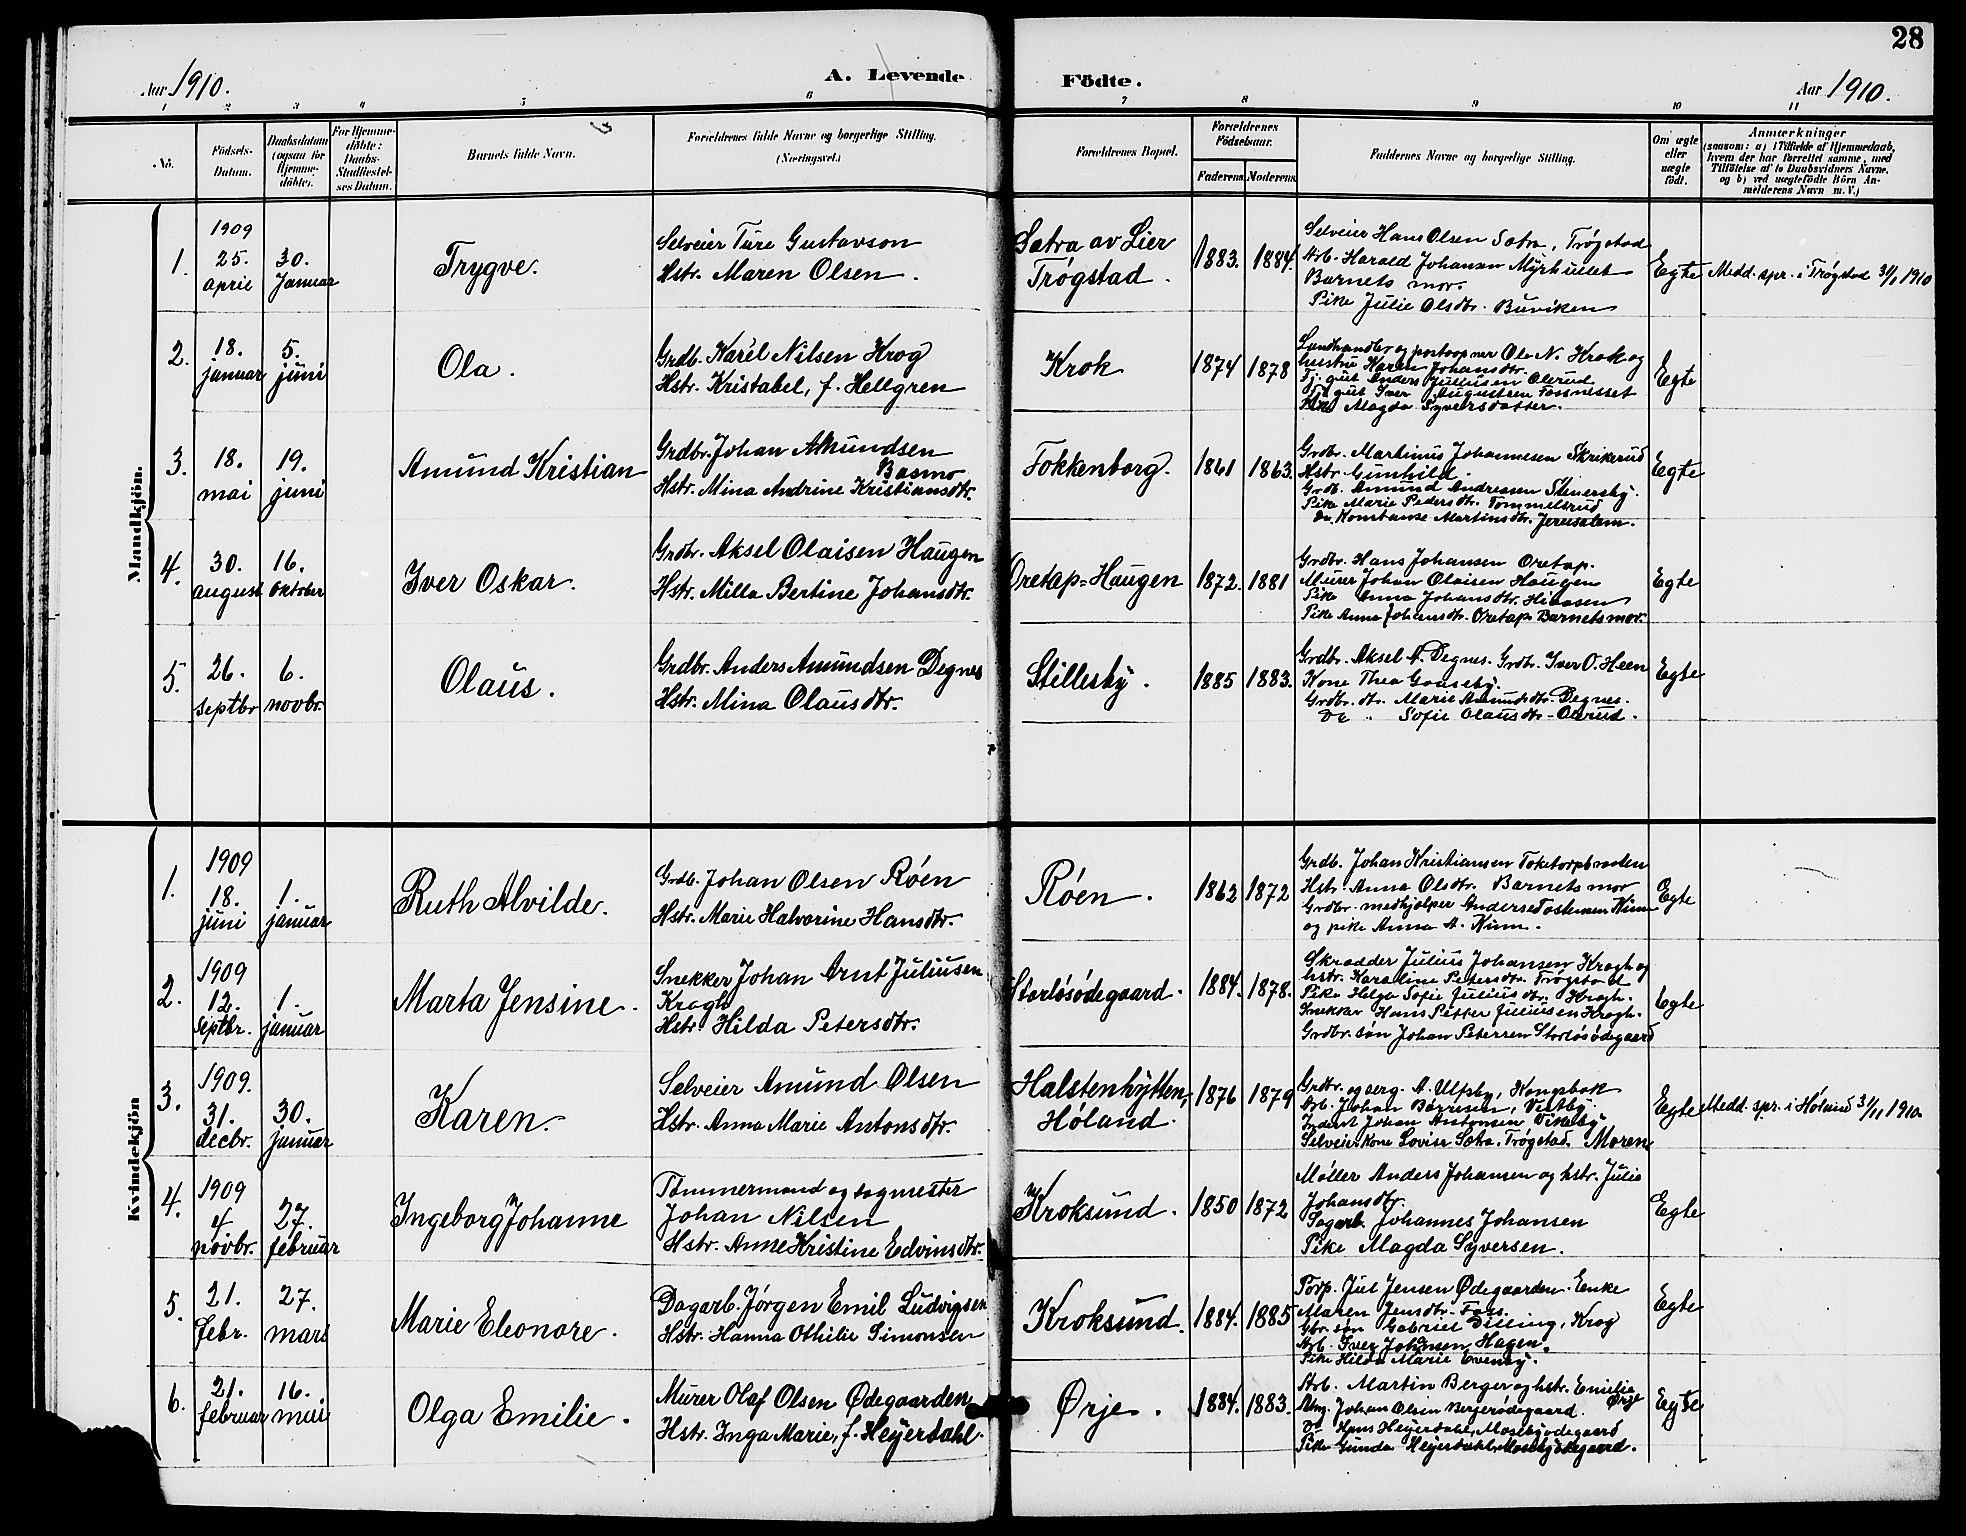 28
Aar 1910.
A. Levende Födte.
Aar 1910.
1 2 3 4 5 6 7 8 9 10 11
No.
Födsels-Datum.
Daabsdatum (ogsaa for Hjemmedöbte).
For Hjemmedöbte: Daabs-Stadfæstelses Datum.
Barnets fulde Navn.
Forældrenes fulde Navne og borgerlige Stilling. (Næringsvei.)
Forældrenes Bopæl.
Forældrenes Födselsaar.
Faderens Moderens
Faddernes Navne og borgerlige Stilling.
Om ægte eller uægte födt.
Anmærkninger
(saasom: a) i Tilfælde af Hjemmedaab, hvem der har forrettet samme, med Tilföielse af to Daabsvidners Navne, og b) ved uægtefödte Börn Anmelderens Navn m. V.)
Mandkjön.
1. 1909 25. april 30. Januar
Trygve.
Selveier Ture Gustavson
Hstr. Maren Olsen.
Sætra av Lier
Trøgstad.
1883. 1884.
Selveier Hans Olsen Sætra, Trøgstad
Arb. Harald Johansen Myrhullet
Barnets mor.
Pike Julie Olsdtr. Buviken
Egte
Medd. spr. i Trøgstad 31/1 1910
2. 18. januar 5. juni
Ola.
Grdb. Karel Nilsen Krog
Hstr. Kristabel, f. Hellgren
Krok
1874 1878
Landhandler og Ole N. Krok og
hustru Karen Johansdtr.
Tj. gut Anders Juliusen Olerud
Tj. gut Iver Augustsen Fossnesset
Pike Magda Syversdatter.
Egte
3. 18. mai 19. juni
Amund Kristian
Grdbr. Johan Amundsen
Basmo
Hstr. Mina Andrine Kristiansdtr.
Fokkenborg.
1861 1863.
Grdbr. Martinus Johannesen Skrikerud
Hstr. Gunhild.
Grdb. Amund Andreasen Stenersby.
Pike Marie Pedersdtr. Tommelsrud
Do. Konstanse Martinsdtr. Jerusalem.
Egte
4. 30. august 16. Oktober
Iver Oskar.
Grdbr. Aksel Olaisen Haugen
Hstr. Milla Bertine Johansdtr.
Oretap=Haugen
1872. 1881
Grdbr. Hans Johansen Oretap.
Murer Johan Olaisen Haugen
Pike Anna Johansdtr.
Pike Anna Johansdtr. Oretap Barnets mor.
Egte
5. 26. septbr 6. novbr.
Olaus.
Grdbr. Anders Amundsen Degnes
Hstr. Mina Olausdtr.
Stillesby.
1885 1883.
Grdbr. Aksel A. Degnes. Grdbr. Iver O. Heen
Kone Thea Gaaseby
Grdbr. dtr. Marie Amundsdtr. Degnes.
Do " Sofie Olausdtr. Olerud.
Egte
Kvindekjön
1. 1909 18. juni 1. januar
Ruth Alvilde.
Grdb. Johan Olsen Röen
Hstr. Marie Halvorine Hansdtr.
Röen.
1862 1872
Grdb. Johan Kristiansen Toketorpbraaten
Hstr. Anna Olsdtr. Barnets mor
Grdbr. medhjelper Anders Kinn
og pike Anna A. Kinn.
Egte
2. 1909 12. septbr. 1. januar
Marta Jensine.
Snekker Johan Arnt Juliusen
Krogh
Hstr. Hilda Petersdtr.
Storløsödegaard.
1884. 1878.
Skrædder Julius Johansen Krogh og
hstr. Karoline Petersdtr. Trøgstad
Pike Helga Sofie Juliusdtr. Krogh.
Snekker Hans Petter Juliusen Krogh.
Grdbr. sön Johan Petersen Storlösödegaard
Egte
3. 1909. 31. decbr. 30. januar
Karen.
Selveier Amund Olsen
Hstr. Anna Marie Antonsdtr.
Halstenhytten,
Höland.
1876 1879
Grdbr. og serg. A. Ulfsby, Kongsbok
Arb. Johan Børresen, Vestby.
Johan Antonsen Tikeby
Selveierkone Lovise Sætra, Trøgstad. Moren
Egte
Medd. spr. i Höland 31/11 1910.
4. 1909 4 novbr. 27. februar
Ingeborg Johanne
Tömmermand og sagmester
Johan Nilsen
Hstr. Anne Kristine Edvinsdtr.
Kroksund.
1850 1872
Møller Anders Johansen og hstr. Julie
Johansdtr.
Sagarb. Johannes Johansen
Pike Magda Syversen.
Egte
5. 21. febr. 27. mars
Marie Eleonore.
Dagarb. Jörgen Emil Ludvigsen
Hstr. Hanna Othilie Simonsen
Kroksund.
1884. 1885
Torp. Juel Jensen Ødegaarden. Enke
Maren Jensdtr. Foss.
Gbr. sön Gabriel Dilling, Krog
Arb. Iver Johnsen Hagen.
Pike Hilda Marie Evensy.
Egte
6. 21. februar 16. mai
Olga Emilie.
Murer Olaf Olsen Ødegaarden
Hstr. Inga Marie, f. Heyerdahl.
Ørje.
1884. 1883.
Arb. Martin Berger og hstr. Emilie
Ørje
Johan Olsen Bergerødegaard.
Do Hans Heyerdahl, Mosebyødegaard
Pike Gunda Heyerdahl, Mosebyødegaard.
Egte